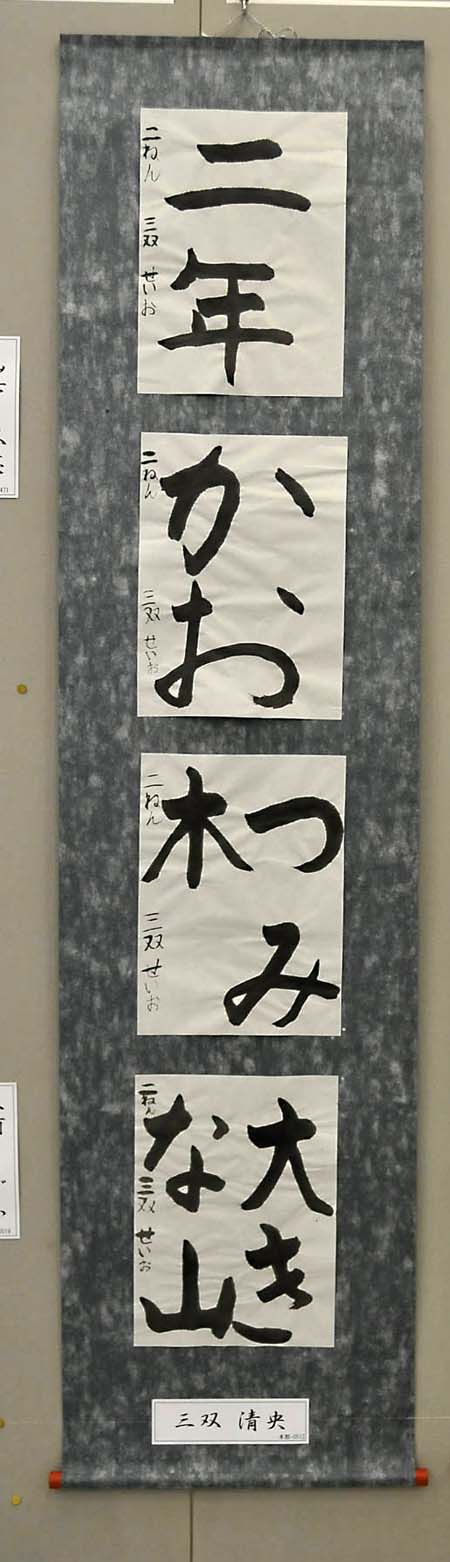 二年
二ねん 三双 せいお
かお
二ねん 三双 せいお
つみ
木
二ねん 三双 せいお
大き
な山
二ねん 三双 せいお
三双 清央